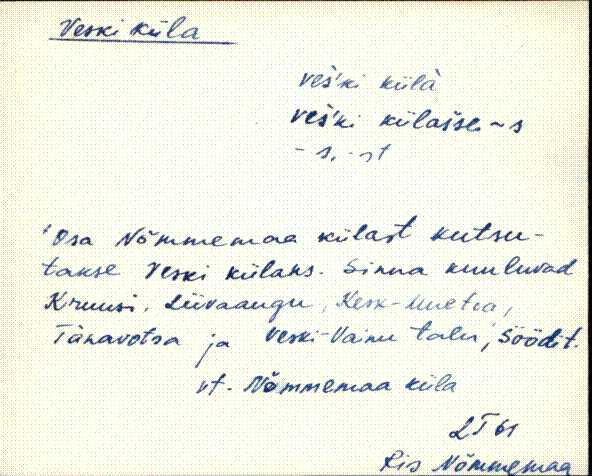 Veski küla
veśki külà
veśki külàsse ~ s
- s, -st
'Osa Nõmmemaa külast kutsu-
takse Veski külaks. Sinna kuuluvad
Kruusi, Liivaaugu, Kesk-
Tänavotsa ja Veski-Vainu talu, Söödit.
vt. Nõmmemaa küla
61
Ris Nõmmemaa